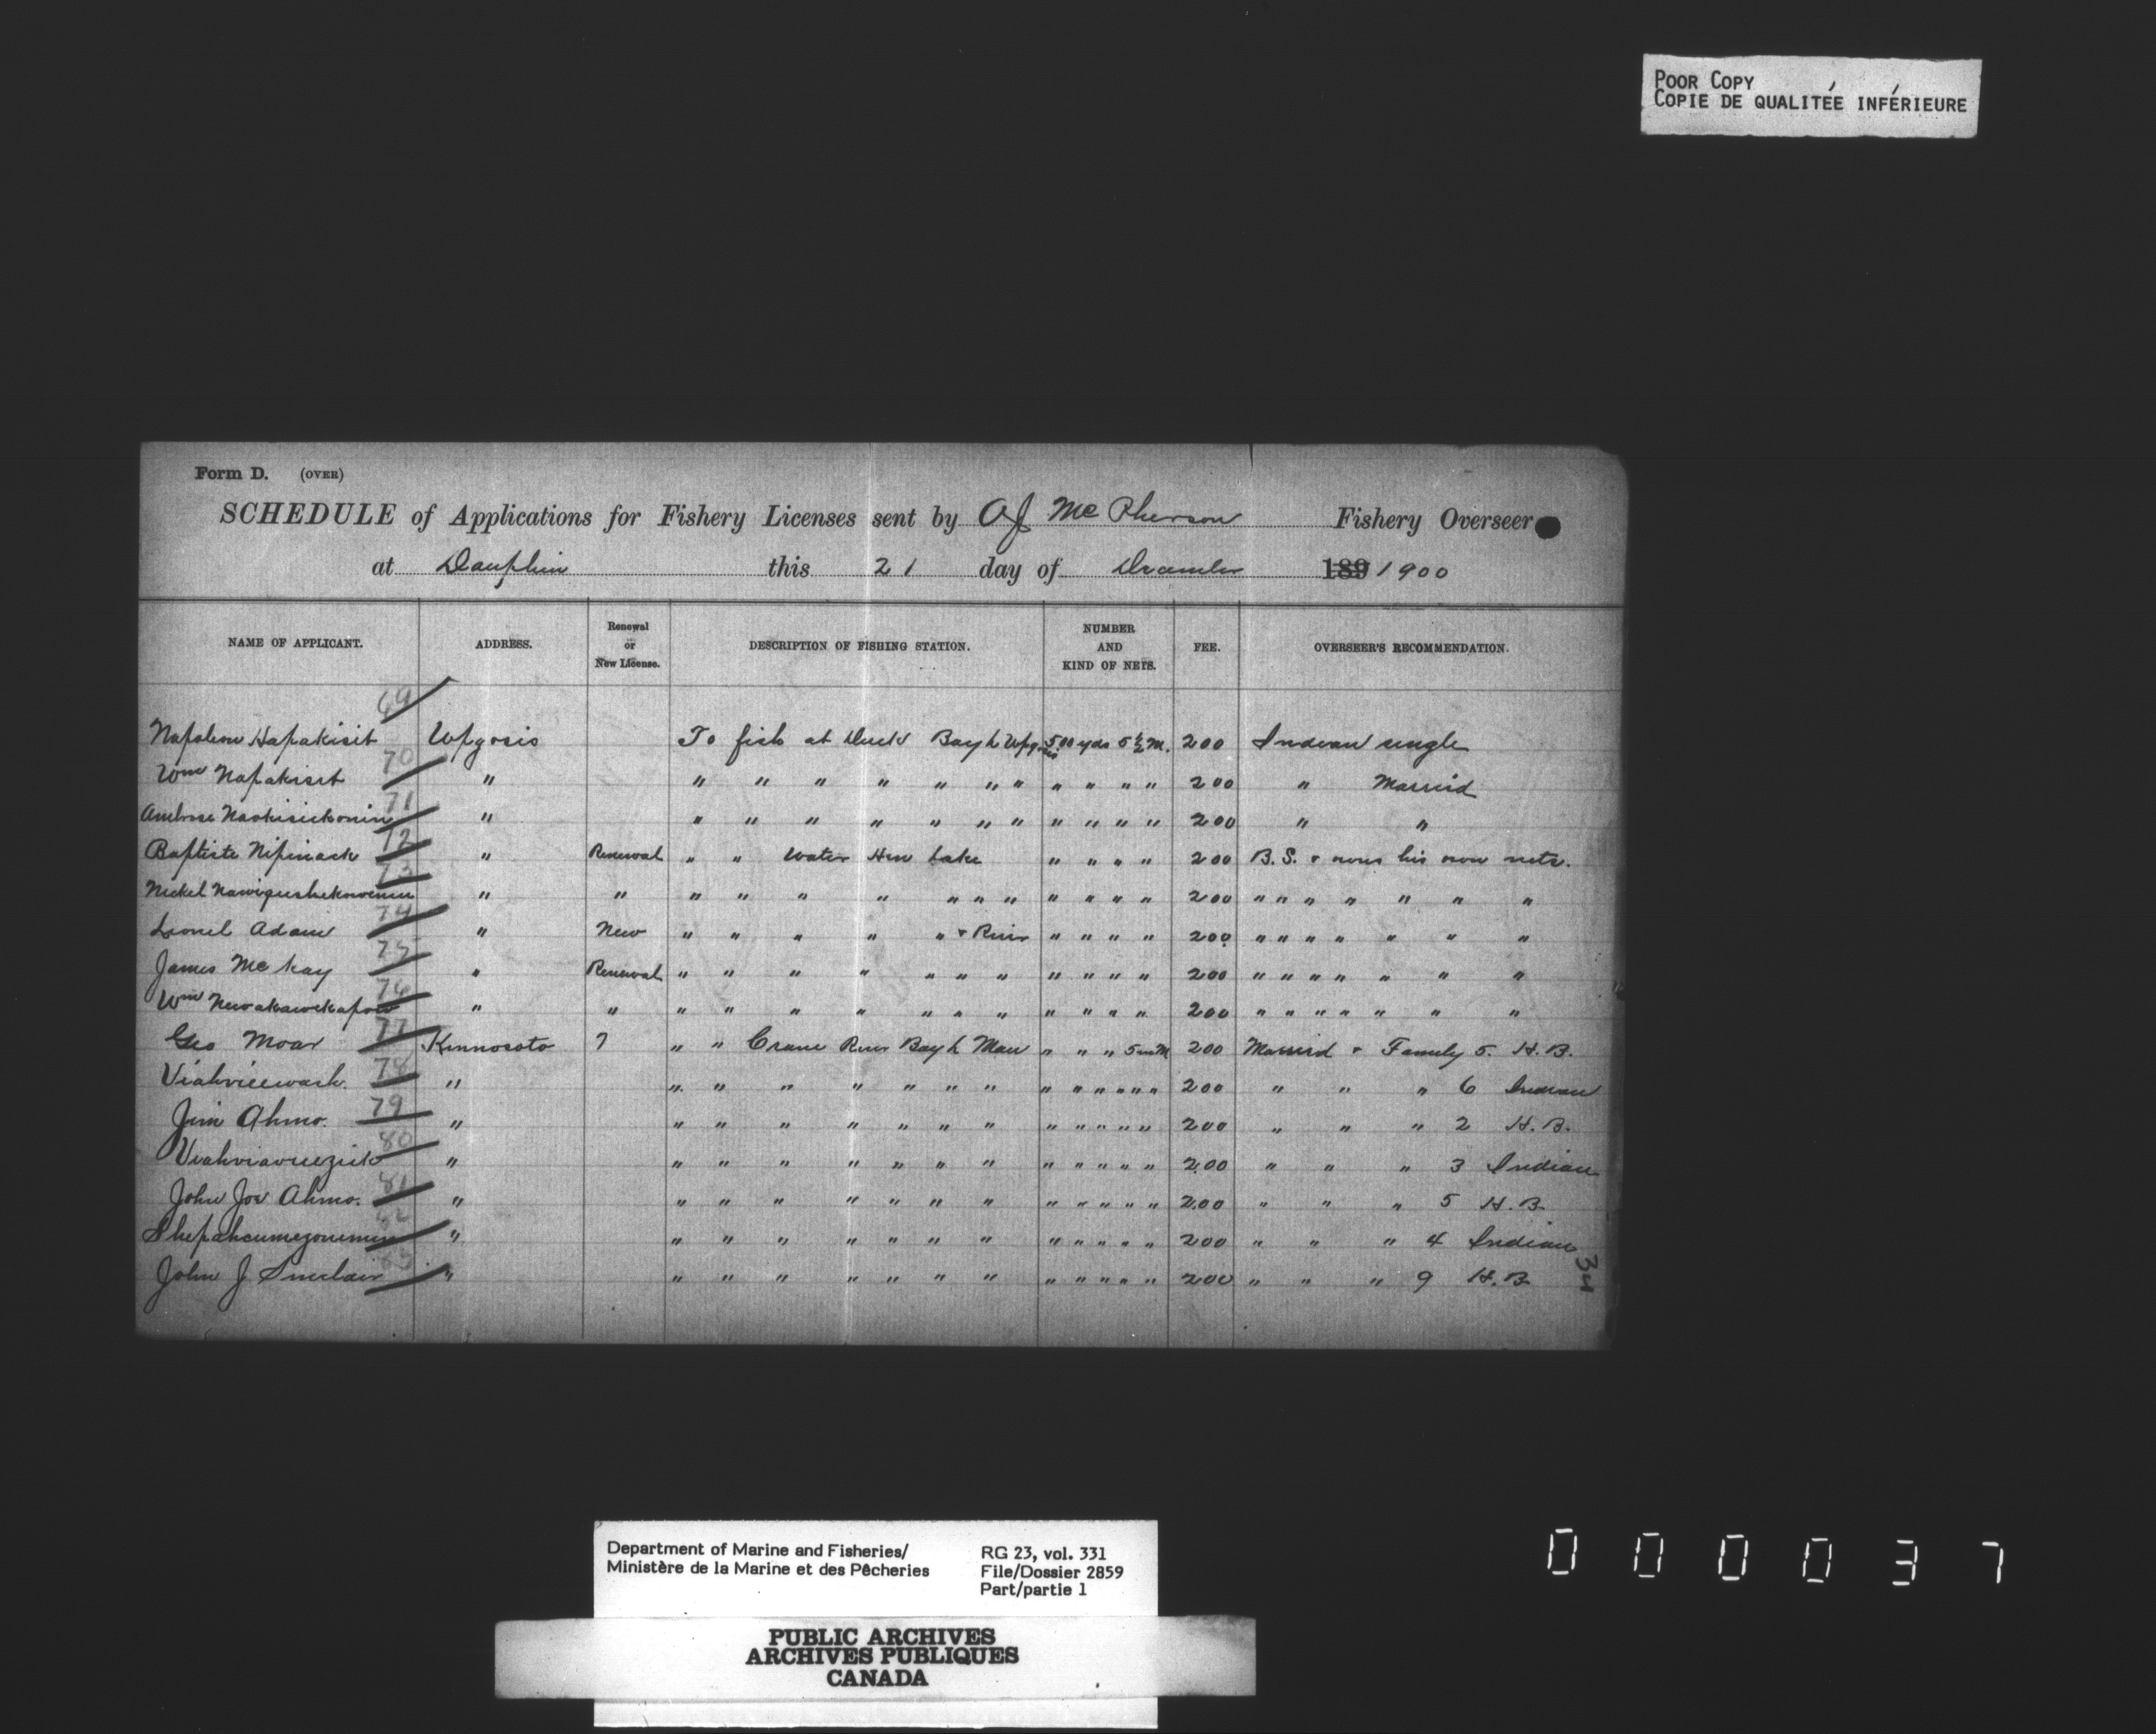 POOR COPY
COPIE DE QUALITÉE INFÉRIEURE
Form D. (OVER)
SCHEDULE of Applications for Fishery Licenses sent by A J McPherson Fishery Overseer
at Dauphin this 21 day of December 189 1900
NAME OF APPLICANT. ADDRESS. Renewal or New License. DESCRIPTION OF FISHING STATION. NUMBER AND KIND OF NETS. FEE. OVERSEER'S RECOMMENDATION.
69
Napoleon Hapakisit Wpgosis To fish at Duck Bay L Wpgosis 500 yds 5½ M. 200 Indian single
70
Wm Napakisit " " " " " " " " " " " " 200 " Married
71
Ambrose " " " " " " " " " " " " 200 " "
72
Baptiste Nipinack " Renewal " " Water Hen Lake " " " " 200 B.S. + owns his own nets.
73
Nickel " " " " " " " " " " " " " 200 " " " " " " "
74
Lionel Adam " New " " " " " + River " " " " 200 " " " " " " "
75
James McKay " Renewal " " " " " " " " " " " 200 " " " " " " "
76
Wm " " " " " " " " " " " " " 200 " " " " " " "
77
Geo Moar Kinnosoto 7 " " Crane River Bay L Man " " " 5 in M 200 Married + Family 5. H.B.
78
" " " " " " " " " " " " " " 200 " " " 6 Indian
79
Jim Ahmo. " " " " " " " " " " " " " 200 " " " 2 H.B.
80
" " " " " " " " " " " " " 200 " " " 3 Indian
81
John Joe Ahmo. " " " " " " " " " " " " " 200 " " " 5 H.B.
82
" " " " " " " " " " " " " 200 " " " 4 Indian
83
John J Sinclair " " " " " " " " " " " " " 200 " " " 9 H.B
34
Department of Marine and Fisheries/ RG 23, vol. 331
Ministère de la Marine et des Pêcheries File/Dossier 2859
Part/partie 1
PUBLIC ARCHIVES
ARCHIVES PUBLIQUES
CANADA
000037